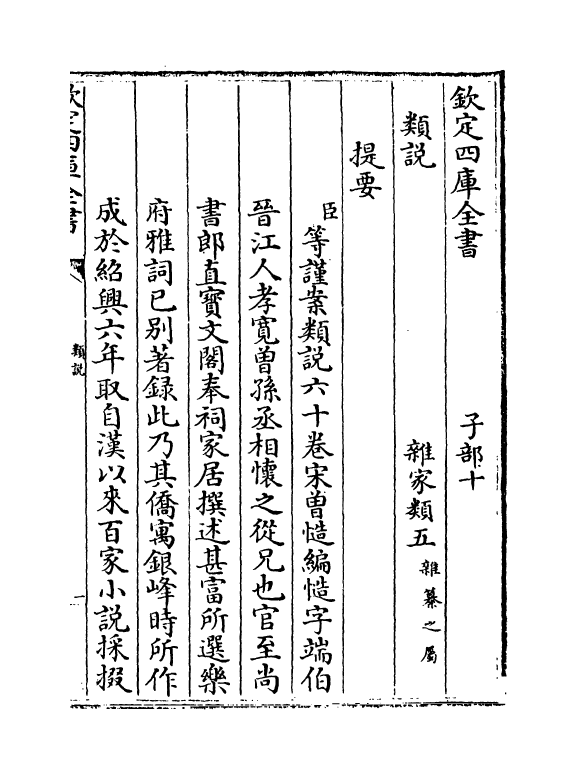 欽定四庫全書　子部十
類説　雜家類五　雜纂之屬
提要
臣等謹案類説六十卷宋曾慥編慥字端伯
晉江人孝寛曽孫丞相懷之從兄也官至尚
書郎直寳文閣奉祠家居撰述甚富所選樂
府雅詞已别著録此乃其僑寓銀峰時所作
成於紹興六年取自漢以來百家小説採掇
欽定四庫全書　類説　一